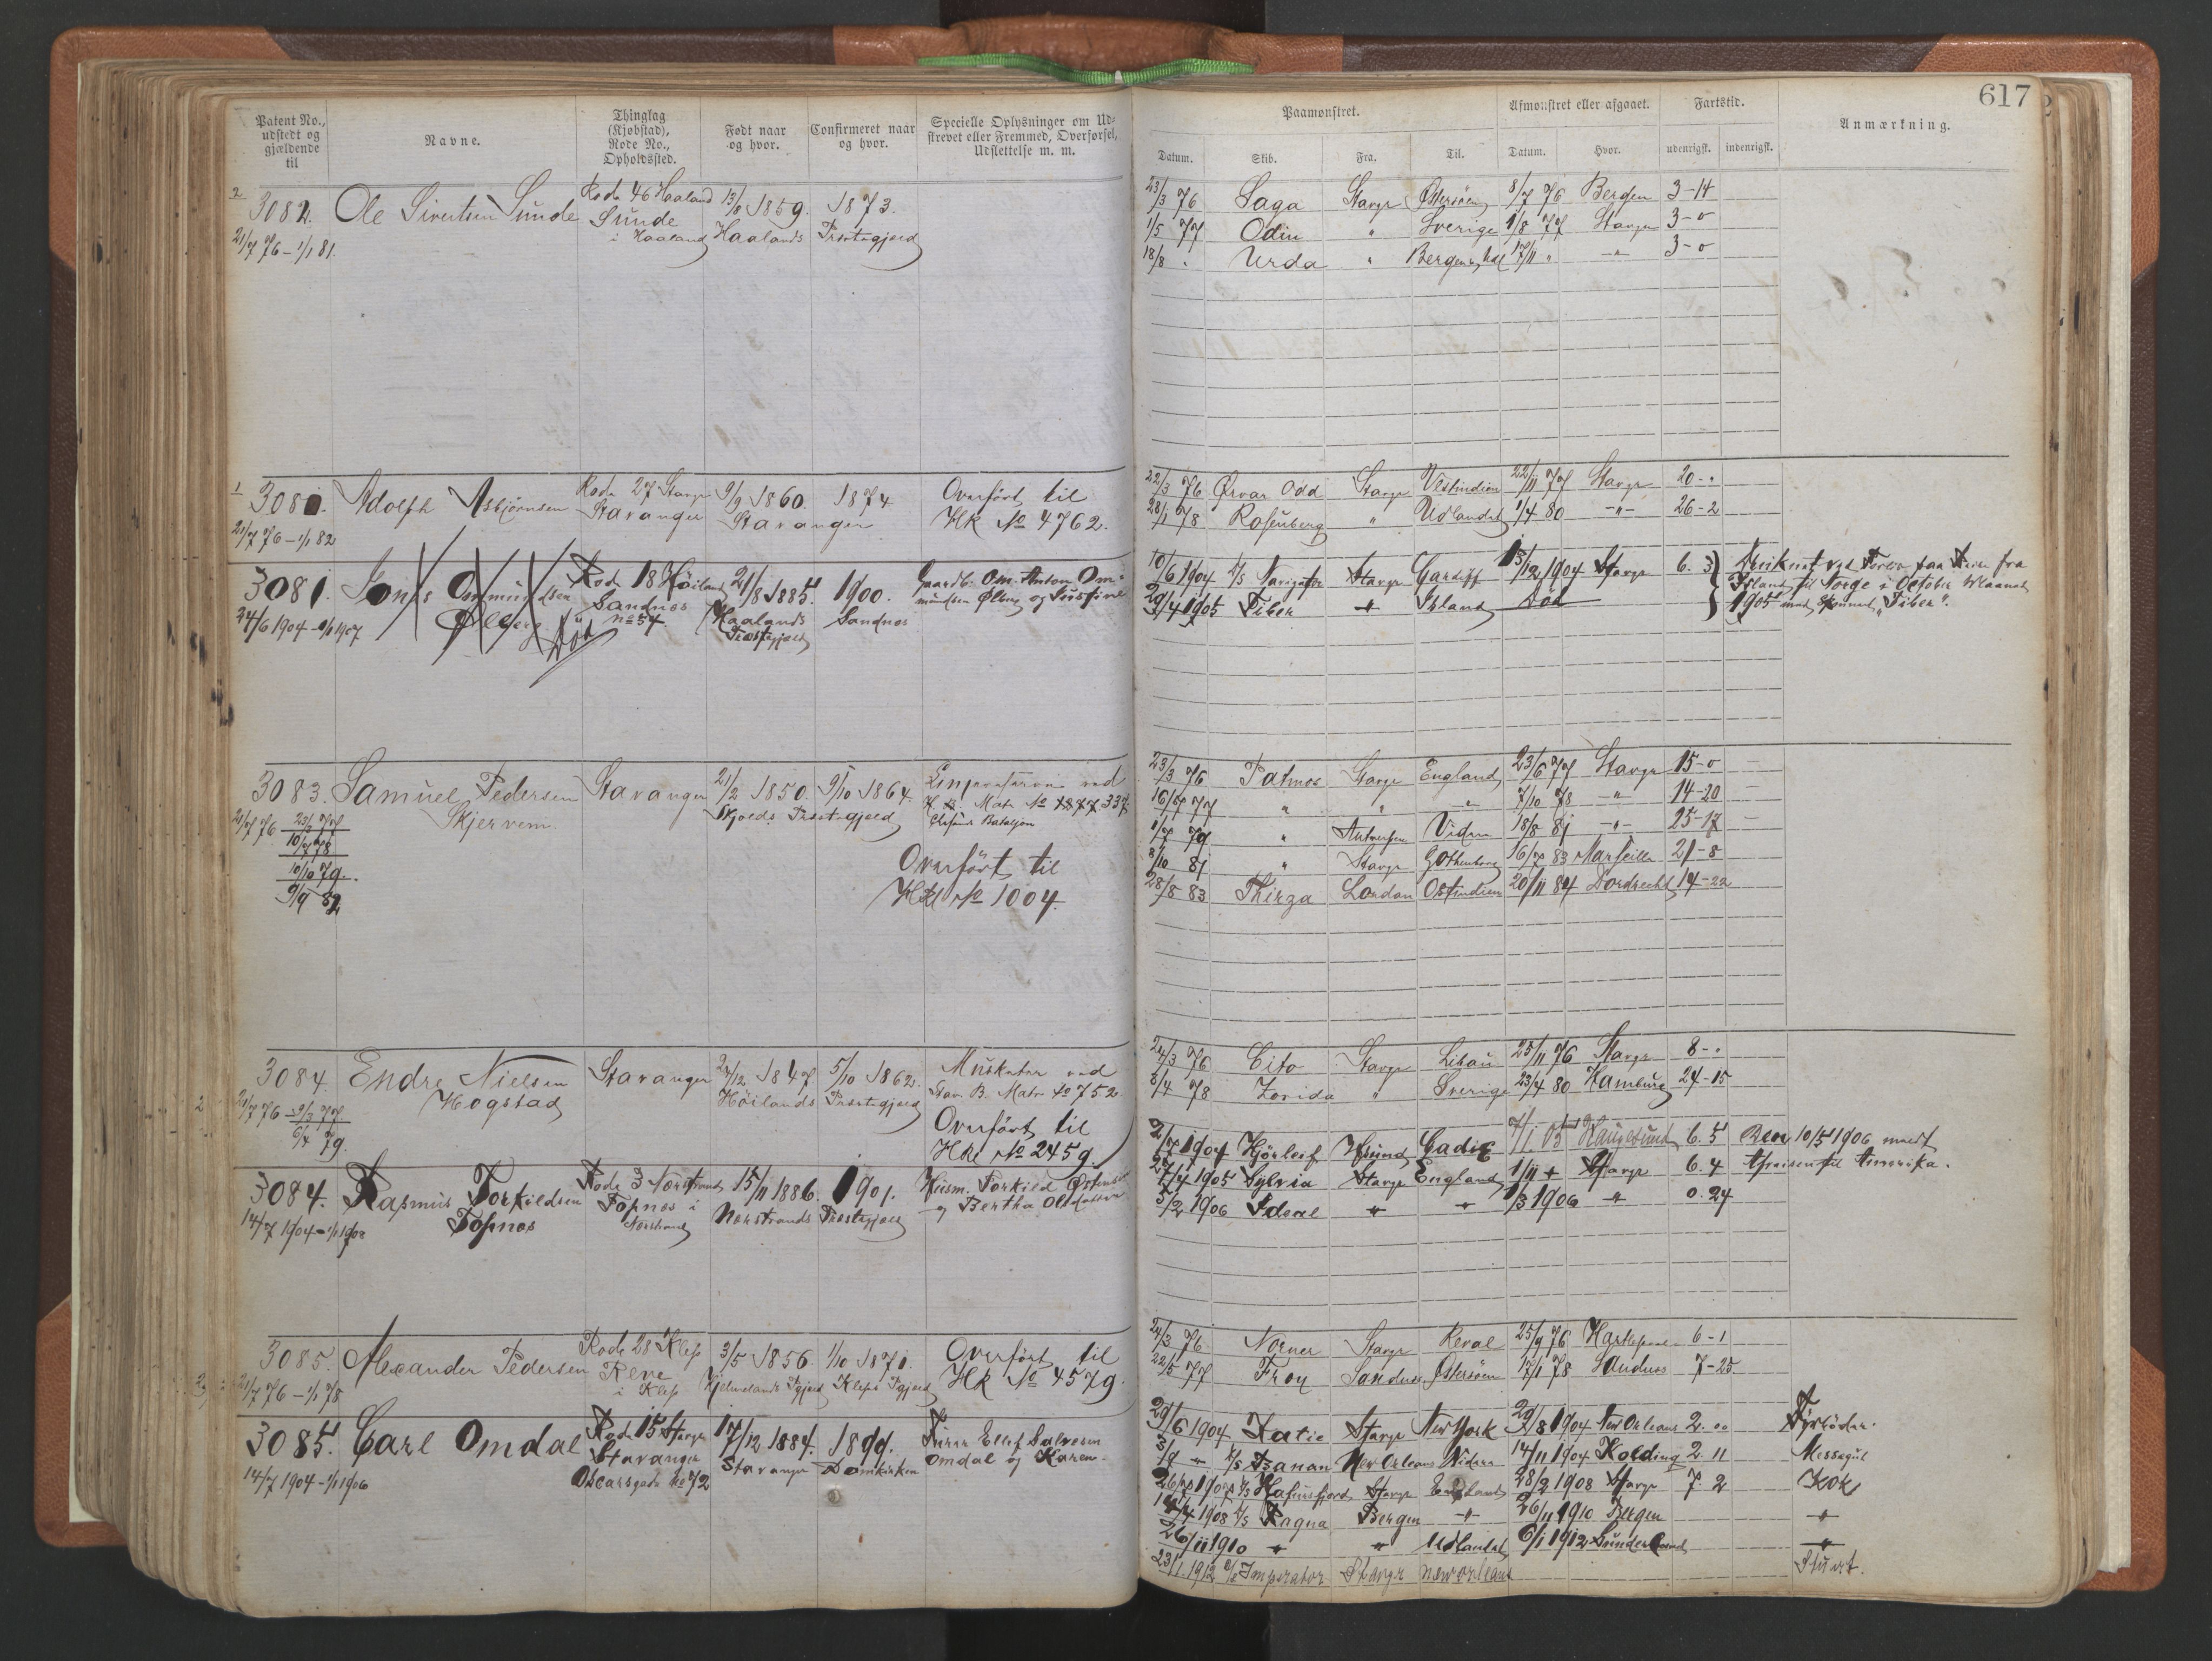 617
Patent No., udstedt og gjældende til
Navne.
Thinglag (Kjøbstad), Rode No., Opholdssted.
Født naar og hvor.
Confirmeret naar og hvor.
Specielle Oplysninger om Udskrevet eller Fremmed, Overførsel, Udslettelse m. m.
Paamønstret.
Afmønstret eller afgaaet.
Fartstid.
Anmærkning.
Datum. Skib. Fra. Til. Datum. Hvor. udenrigsk. indenrigsk.
2
3082. Ole Sivertsen Sunde Rode 46 Haaland 13/8 1859. 1873.
Sunde
i Haaland Haalands Præstegjæld
21/7 76 – 1/1 81.
23/3 76 Saga Stavgr Østersøen 8/7 76 Bergen 3-14
1/5 77 Odin " Sverige 1/8 77 Stavgr 3-0
18/8 " Urda " Bergen 17/11 " -"- 3-0
1
3081. Adolph Asbjørnsen Rode 27 Stavgr 9/9 1860. 1874
Stavanger Stavanger
21/7 76 – 1/1 82
Overført til
Hk No 4762.
22/3 76 Ørvar Odd Stavgr Vestindien 22/11 77 Stavgr 20-"
28/1 78 Rosenberg " Udlandet 1/4 80 -"- 26-2
3081. Jonas Ommundsen Rode 18 Høiland 21/8 1885. 1900.
Ølberg Død Sandnes No 54 Haalands Præstegjæld Sandnes
24/6 1904 – 1/1 1907
Gaardb. Om. Anton Ommundsen Ølberg og
10/6 1904 Navigator Stavgr Cardiff 13/12 1904 Stavgr 6. 3
29/4 1905 Tiber " Island Død
fra
Island til Norge i October Maaned
1905 med "Tiber".
3083. Samuel Pedersen Stavanger 21/2 1850. 9/10 1864.
Skjervem Skjolds Præstegjæld
21/7 76 23/3 77
10/7 78
10/10 79.
9/9 82
ved
Matr No 337
Bataljon
Overført til
Hkl No 1004
23/3 76 Patmos Stavgr England 23/6 77 Stavgr 15-0
16/7 77 " " " 7/10 78 -"- 14-20
1/7 79 " Antwerpen Viden 18/8 81 -"- 25-17
8/10 81 " Stavgr Gothenborg 16/7 83 Marseille 21-8
28/8 83 Thirza London Ostindien 20/11 84 Dordrecht 14-22
3084. Endre Nielsen Stavanger 24/12 1847 5/10 1862.
Hogstad Høilands Præstegjæld
21/7 76 – 9/3 77
6/4 79.
Musketer ved
Stav. B. Matr No 752.
Overført til
Hkl No 2459.
24/3 76 Cito Stavgr Libau 25/11 76 Stavgr 8-"
8/4 78 Zorida " Sverige 23/4 80 Hamburg 24-15
3084. Rasmus Torkildsen Rode 3 Nærstrand 15/11 1886. 1901.
Topnes Topnes i Nærstrand Nærstrands Præstegjæld
14/7 1904 – 1/1 1908
Husm. Torkild
og Bertha
2/7 1904 Hjørleif Hsund Cadiz 7/1. 05 Haugesund 6. 5
27/4 1905 Sylvia Stavgr England 1/11 " Stavgr 6. 4
5/2 1906 Ideal " " 1/3 1906 " 0. 24
10/5 1906 meldt
Afreisen til Amerika.
3085. Alexander Pedersen Rode 28 Klep 3/5 1856. 1/10 1871.
Reve
i Klep Hjelmelands Pgjæld Kleps Pgjæld
21/7 76 – 1/1 78
Overført til
Hk No 4579.
24/3 76 Norner Stavgr Reval 25/9 76 Hartlepool 6-1
22/5 77 Froy Sandnes Østersøen 17/1 78 Sandnes 7-25
3085. Carl Omdal Rode 15 Stavgr 17/12 1884. 1899.
Stavanger Stavanger Domkirken
Oscarsgade No 72
14/7 1904 – 1/1 1906
Ellef Salvesen
Omdal og Karen
29/6 1904 Katie Stavgr New York 29/8 1904 New Orleans 2.00 Fyrbøder.
3/9 " Banan New Orleans Videre 14/11 1904 Kolding 2. 11 Messegut
26/7 1907 Hafursfjord Stavgr England 28/2 1908 Stavgr 7. 2 Kok
14/4 1908 Ragna Bergen " 26/11 1910 Bergen "
26/11 1910 " " Udlandet 6/1 1912 Sunderland "
23/1. 1912 Imperator Stavgr New Orleans Stuert.